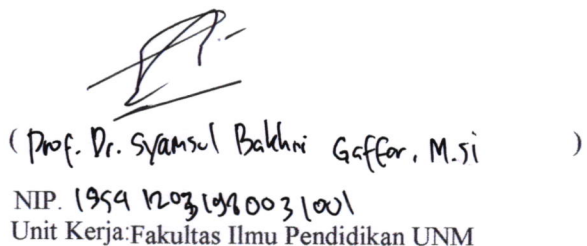 ( Prof. Dr. Syamsul Bakhri Gaffar, M.Si )
NIP. 19591203 198003 1 001
Unit Kerja:Fakultas Ilmu Pendidikan UNM